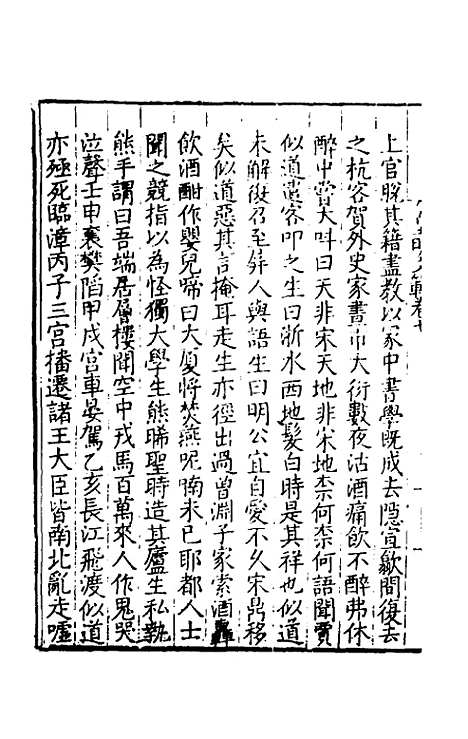 上官脫其籍盡教以家中書學既成去隱宣歙間復去
之杭客賀外史家晝市大衍數夜沽酒痛飲不醉弗休
醉中嘗大呌曰天非宋天地非宋地柰何柰何語聞賈
似道遣客叩之生曰浙水西地髮白時是其祥也似道
未解復召至屏人與語生曰明公宜自愛不久宋鼎移
矣似道惡其言掩耳走生亦徑出過曾淵子家索酒轟
飲酒酣作嬰兒啼曰大廈將焚燕呢喃未已耶都人士
聞之競指以為怪獨大學生熊晞聖時造其廬生私執
熊手謂曰吾端居層樓聞空中戎馬百萬來人作鬼哭
泣聲壬申襄樊陷甲戌宮車晏駕乙亥長江飛渡似道
亦殛死臨漳丙子三宮播遷諸王大臣皆南北亂走噓